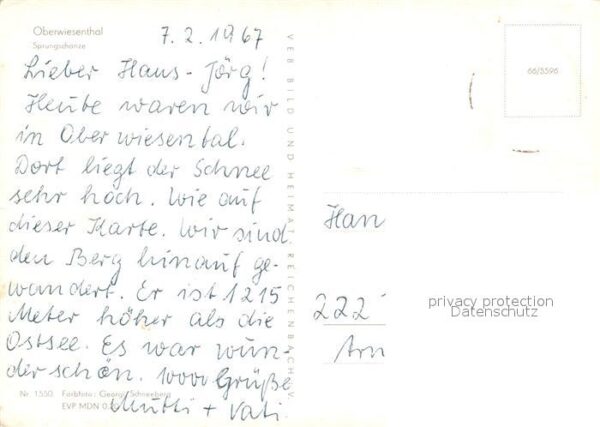 Oberwiesenthal
Sprungschanze
7.2.1967
Lieber Hans-Jörg!
Heute waren wir
in Oberwiesental.
Dort liegt der Schnee
sehr hoch. Wie auf
dieser Karte. Wir sind
den Berg hinauf ge-
wandert. Er ist 1215
Meter höher als die
Ostsee. Es war wun-
derschön. 10000 Grüße
Mutti + Vati
Nr. 1550 Farbfoto: Georgi, Schneeberg
EVP MDN 0,20
VEB BILD UND HEIMAT REICHENBACH I. V.
66/5596
Han
222
Arn
privacy protection
Datenschutz